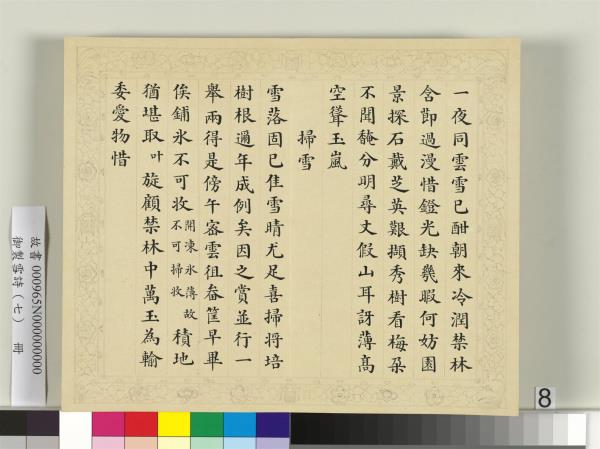 一夜同雲雪已酣朝來冷潤禁林
含節過漫惜鐙光缺幾暇何妨園
景探石戴芝英艱擷秀樹看梅朶
不聞馣分明尋丈假山耳訝薄高
空聳玉嵐
掃雪
雪落固已佳雪晴尤足喜掃將培
樹根邇年成例矣因之賞並行一
舉兩得是傍午密雲徂畚筐早畢
俟鋪氷不可收 開凍氷薄故不可掃收 積地
猶堪取叶旋顧禁林中萬玉為輸
委愛物惜
故書 000965N000000000
御製雪詩(七) 冊
8